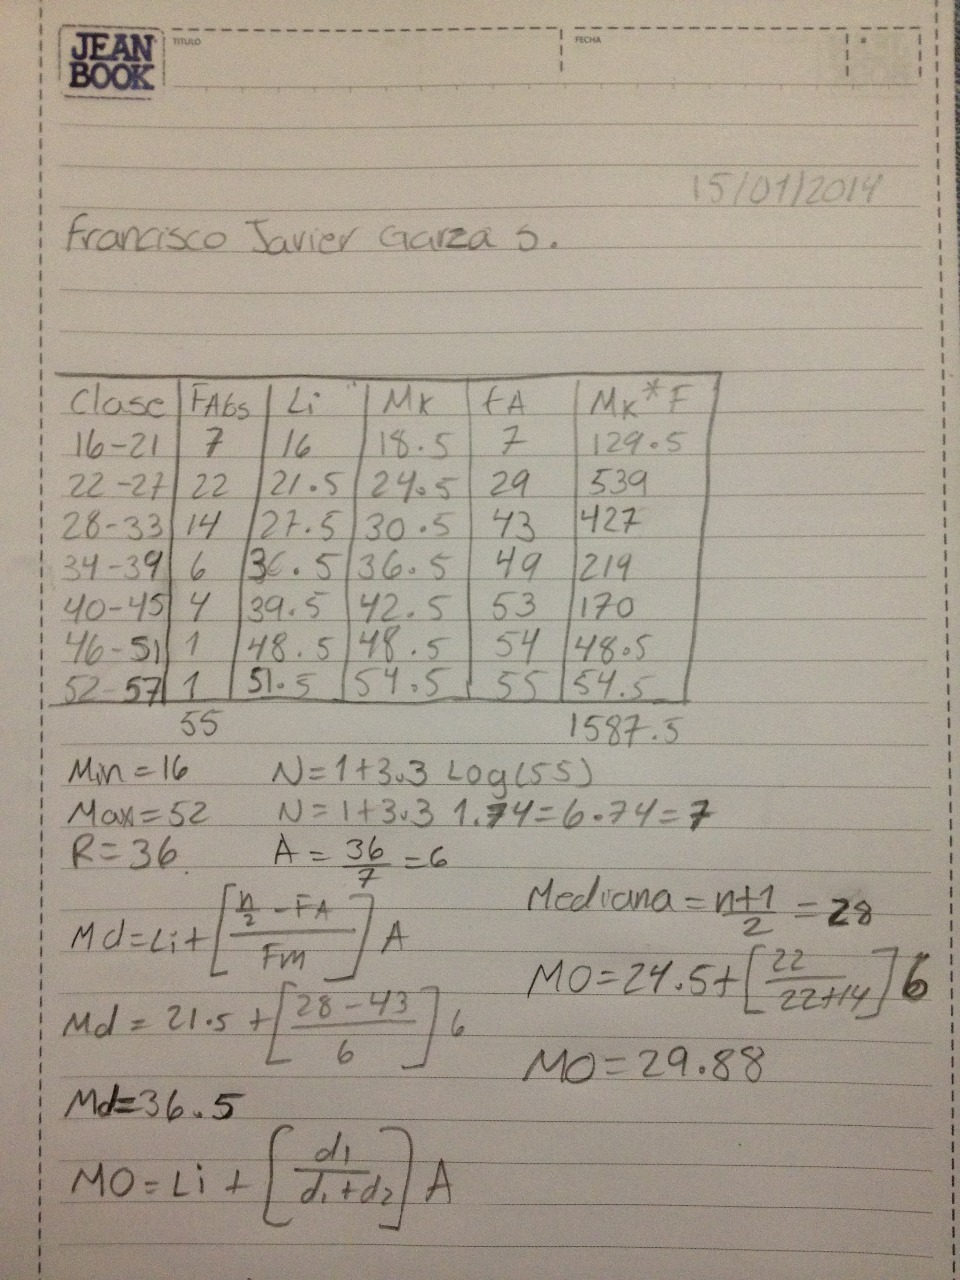 JEAN
BOOK
TITULO
FECHA
15/01/2014
Francisco Javier Garza S.
Clase FAbs Li Mk fA Mk*F
16-21 7 16 18.5 7 129.5
22-27 22 21.5 24.5 29 539
28-33 14 27.5 30.5 43 427
34-39 6 36.5 36.5 49 219
40-45 4 39.5 42.5 53 170
46-51 1 48.5 48.5 54 48.5
52-57 1 51.5 54.5 55 54.5
55 1587.5
Min=16 N=1+3.3 Log(55)
Max=52 N=1+3.3 1.74=6.74=7
R=36 A=36/7=6
Md=Li+[(n/2-FA)/Fm]A
Md=21.5+[(28-43)/6]6
Md=36.5
MO=Li+[d1/(d1+d2)]A
Mediana=n+1/2=28
MO=24.5+[22/(22+14)]6
MO=29.88